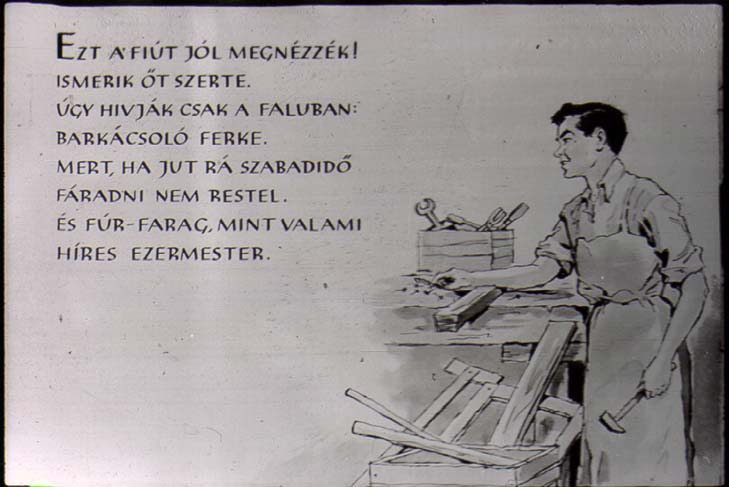 EZT A FIÚT JÓL MEGNÉZZÉK!
ISMERIK ŐT SZERTE.
ÚGY HIVJÁK CSAK A FALUBAN:
BARKÁCSOLÓ FERKE.
MERT, HA JUT RÁ SZABADIDŐ
FÁRADNI NEM RESTEL.
ÉS FÚR-FARAG, MINT VALAMI
HÍRES EZERMESTER.